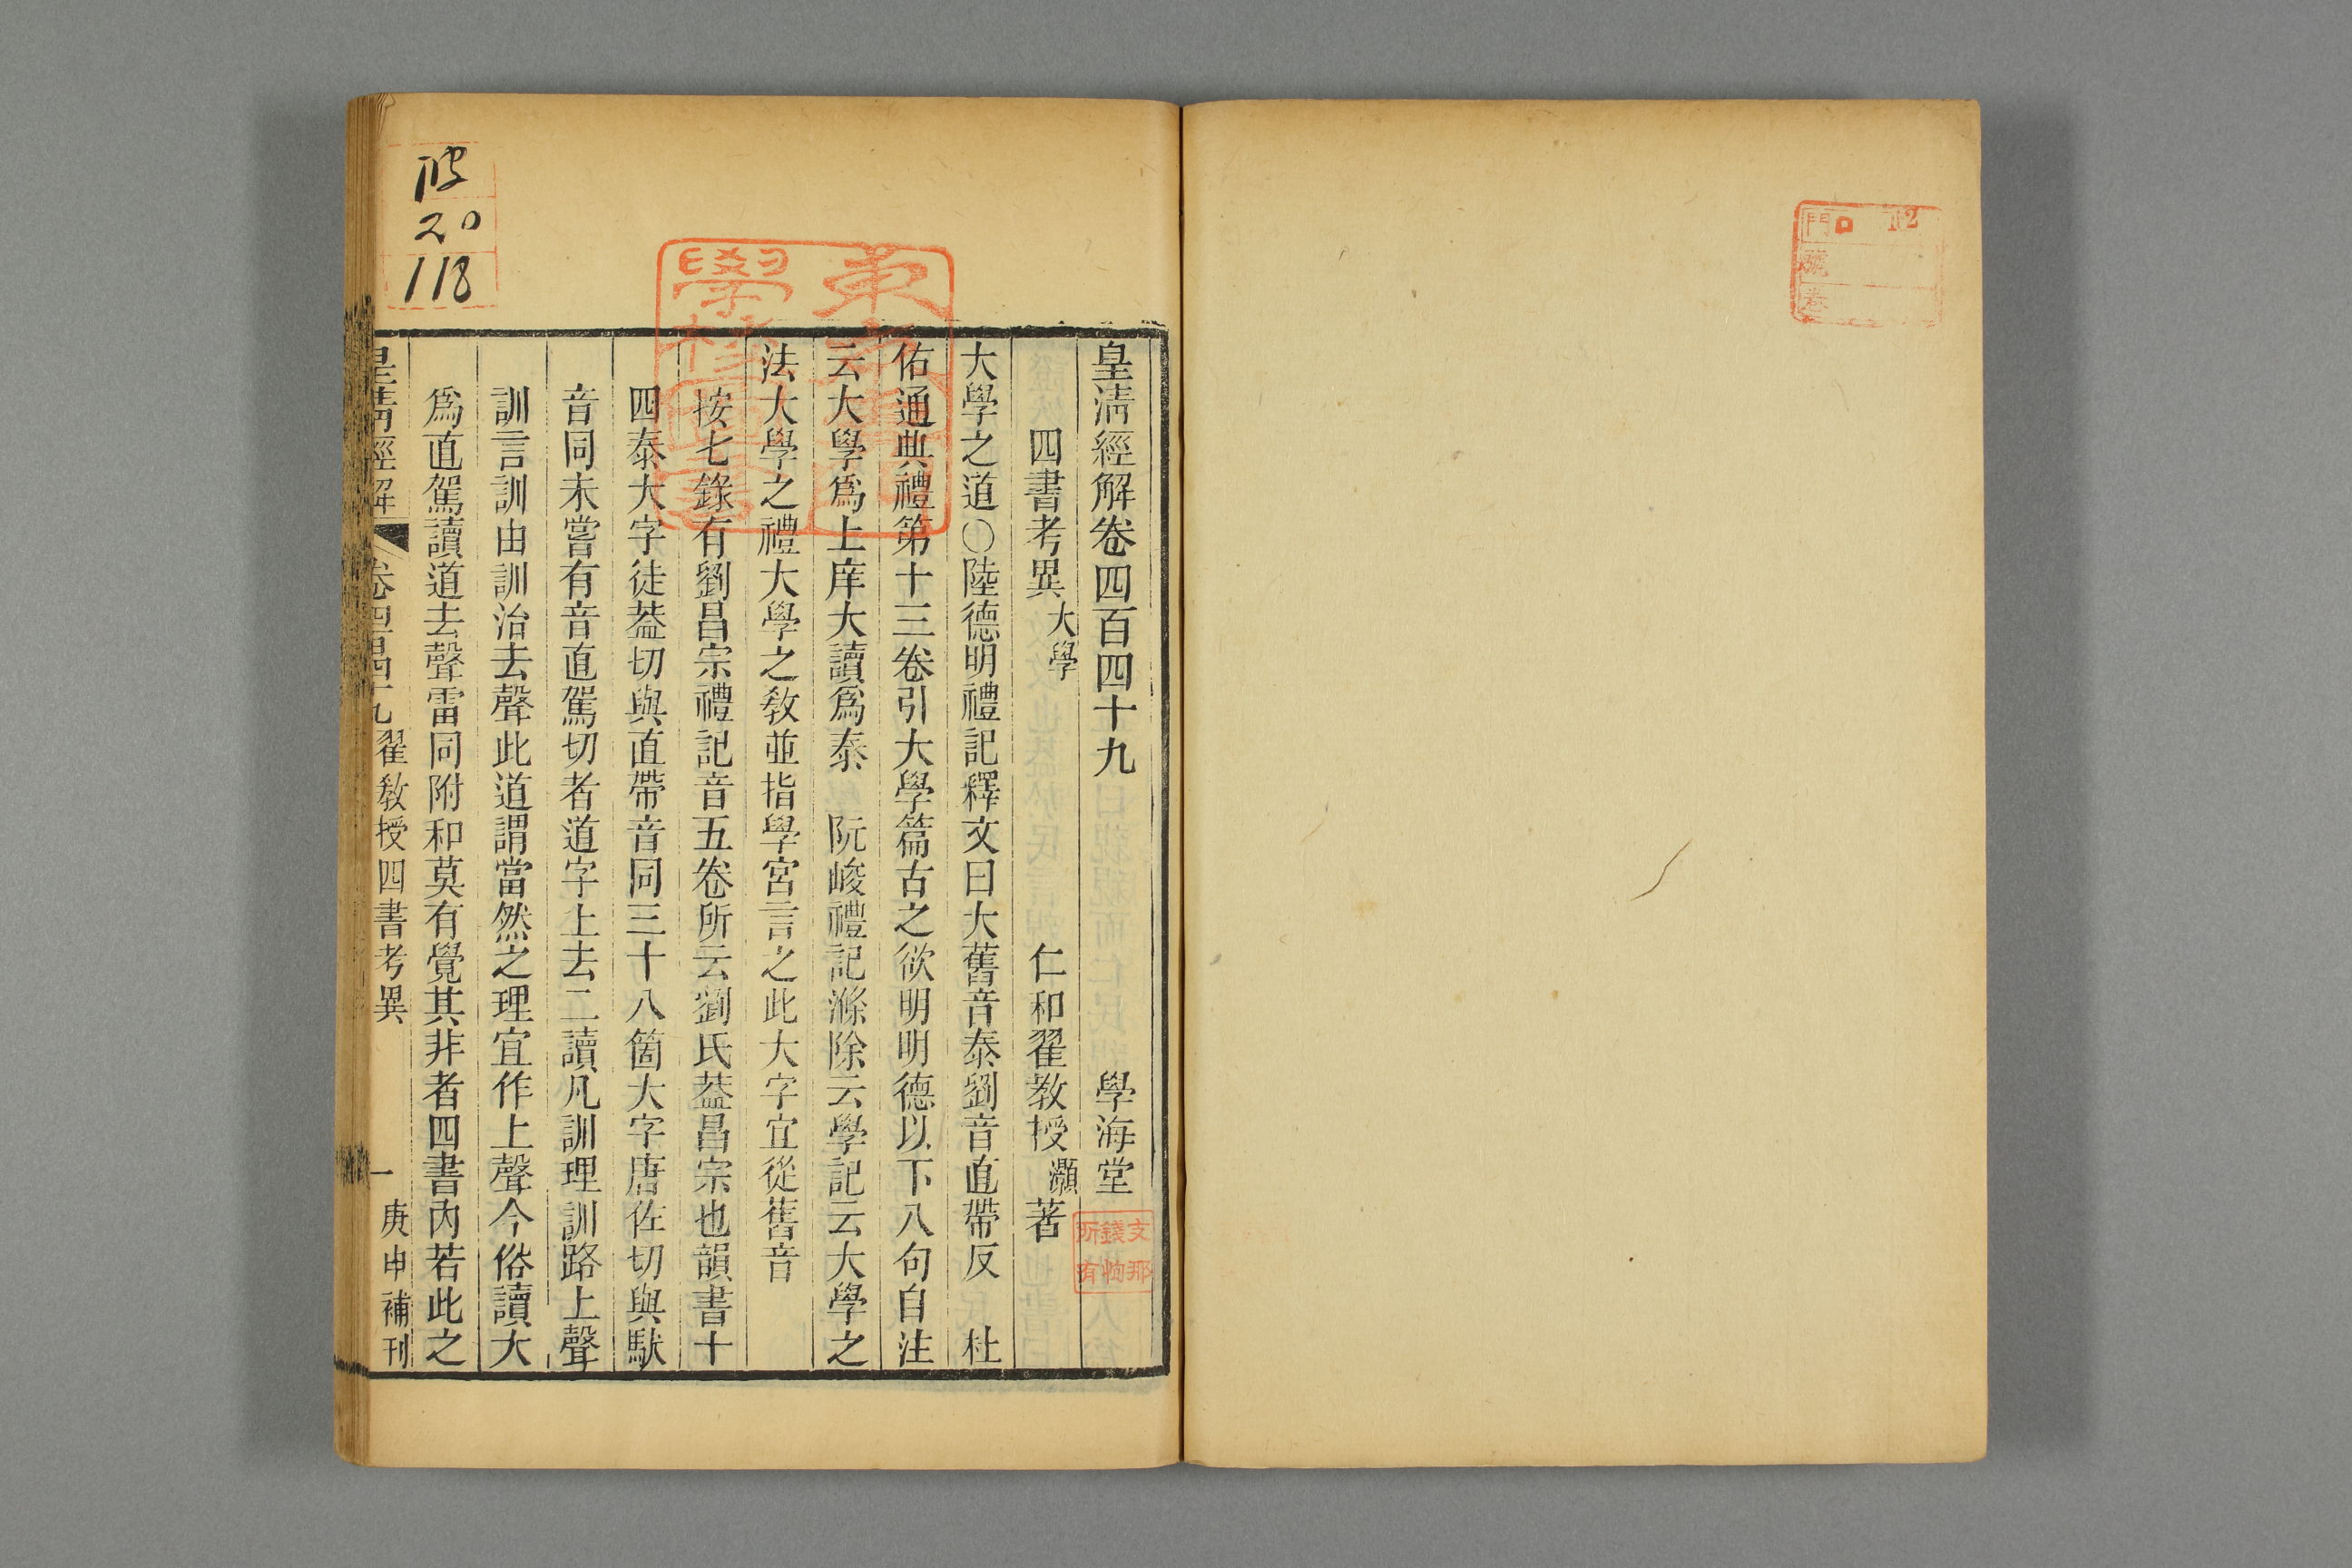 門 12
號
卷
皇清經解卷四百四十九 學海堂
四書考異 大學 仁和翟教授灝著
大學之道○陸德明禮記釋文曰大舊音泰劉音直帶反 杜
佑通典禮第十三卷引大學篇古之欲明明德以下八句自注
云大學爲上庠大讀爲泰 阮峻禮記滌除云學記云大學之
法大學之禮大學之教並指學宮言之此大字宜從舊音
按七錄有劉昌宗禮記音五卷所云劉氏葢昌宗也韻書十
四泰大字徒葢切與直帶音同三十八箇大字唐佐切與馱
音同未嘗有音直駕切者道字上去二讀凡訓理訓路上聲
訓言訓由訓治去聲此道謂當然之理宜作上聲今俗讀大
爲直駕讀道去聲雷同附和莫有覺其非者四書內若此之
皇清經解 卷四百四十九 翟教授四書考異 一 庚申補刊
支那
錢恂
所有
20
118